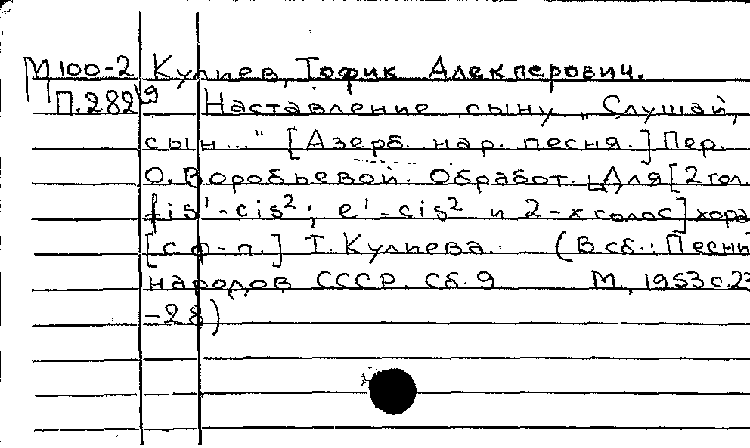 М100-2 Кулиев, Тофик Алекперович.
П.282/9 Наставление сыну „Слушай,
сын..." [Азерб. нар. песня.] Пер.
О. Воробьевой. Обработ. Для [2 гол.
fis'-cis²; e'-cis² и 2-х голос] хора
[с ф-п.] Т. Кулиева. (В сб.: Песни
народов СССР. Сб. 9 М, 1953 с. 23
-28)